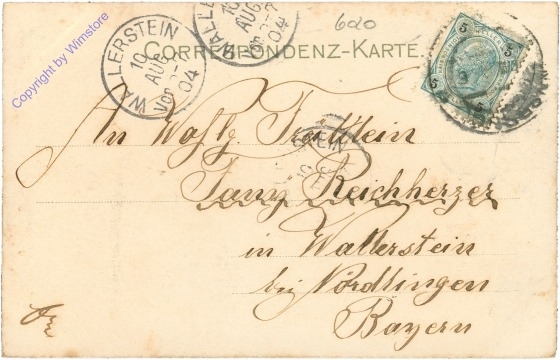 Copyright by Wimstore
WALLERSTEIN
10
AUG
Vor
04
WALLE
10
AUG
Vor
04
6020
CORRESPONDENZ-KARTE.
5 5
5 5
STEIN
An Wohlg. Fräulein
Fany Reichherzer
in Wallerstein
bei Nördlingen
Bayern